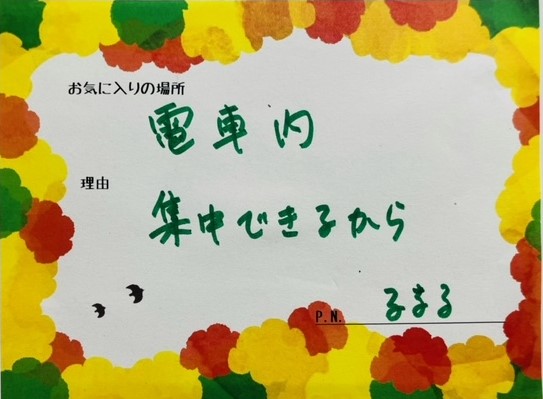 お気に入りの場所
電車内
理由
集中できるから
P.N. るまる